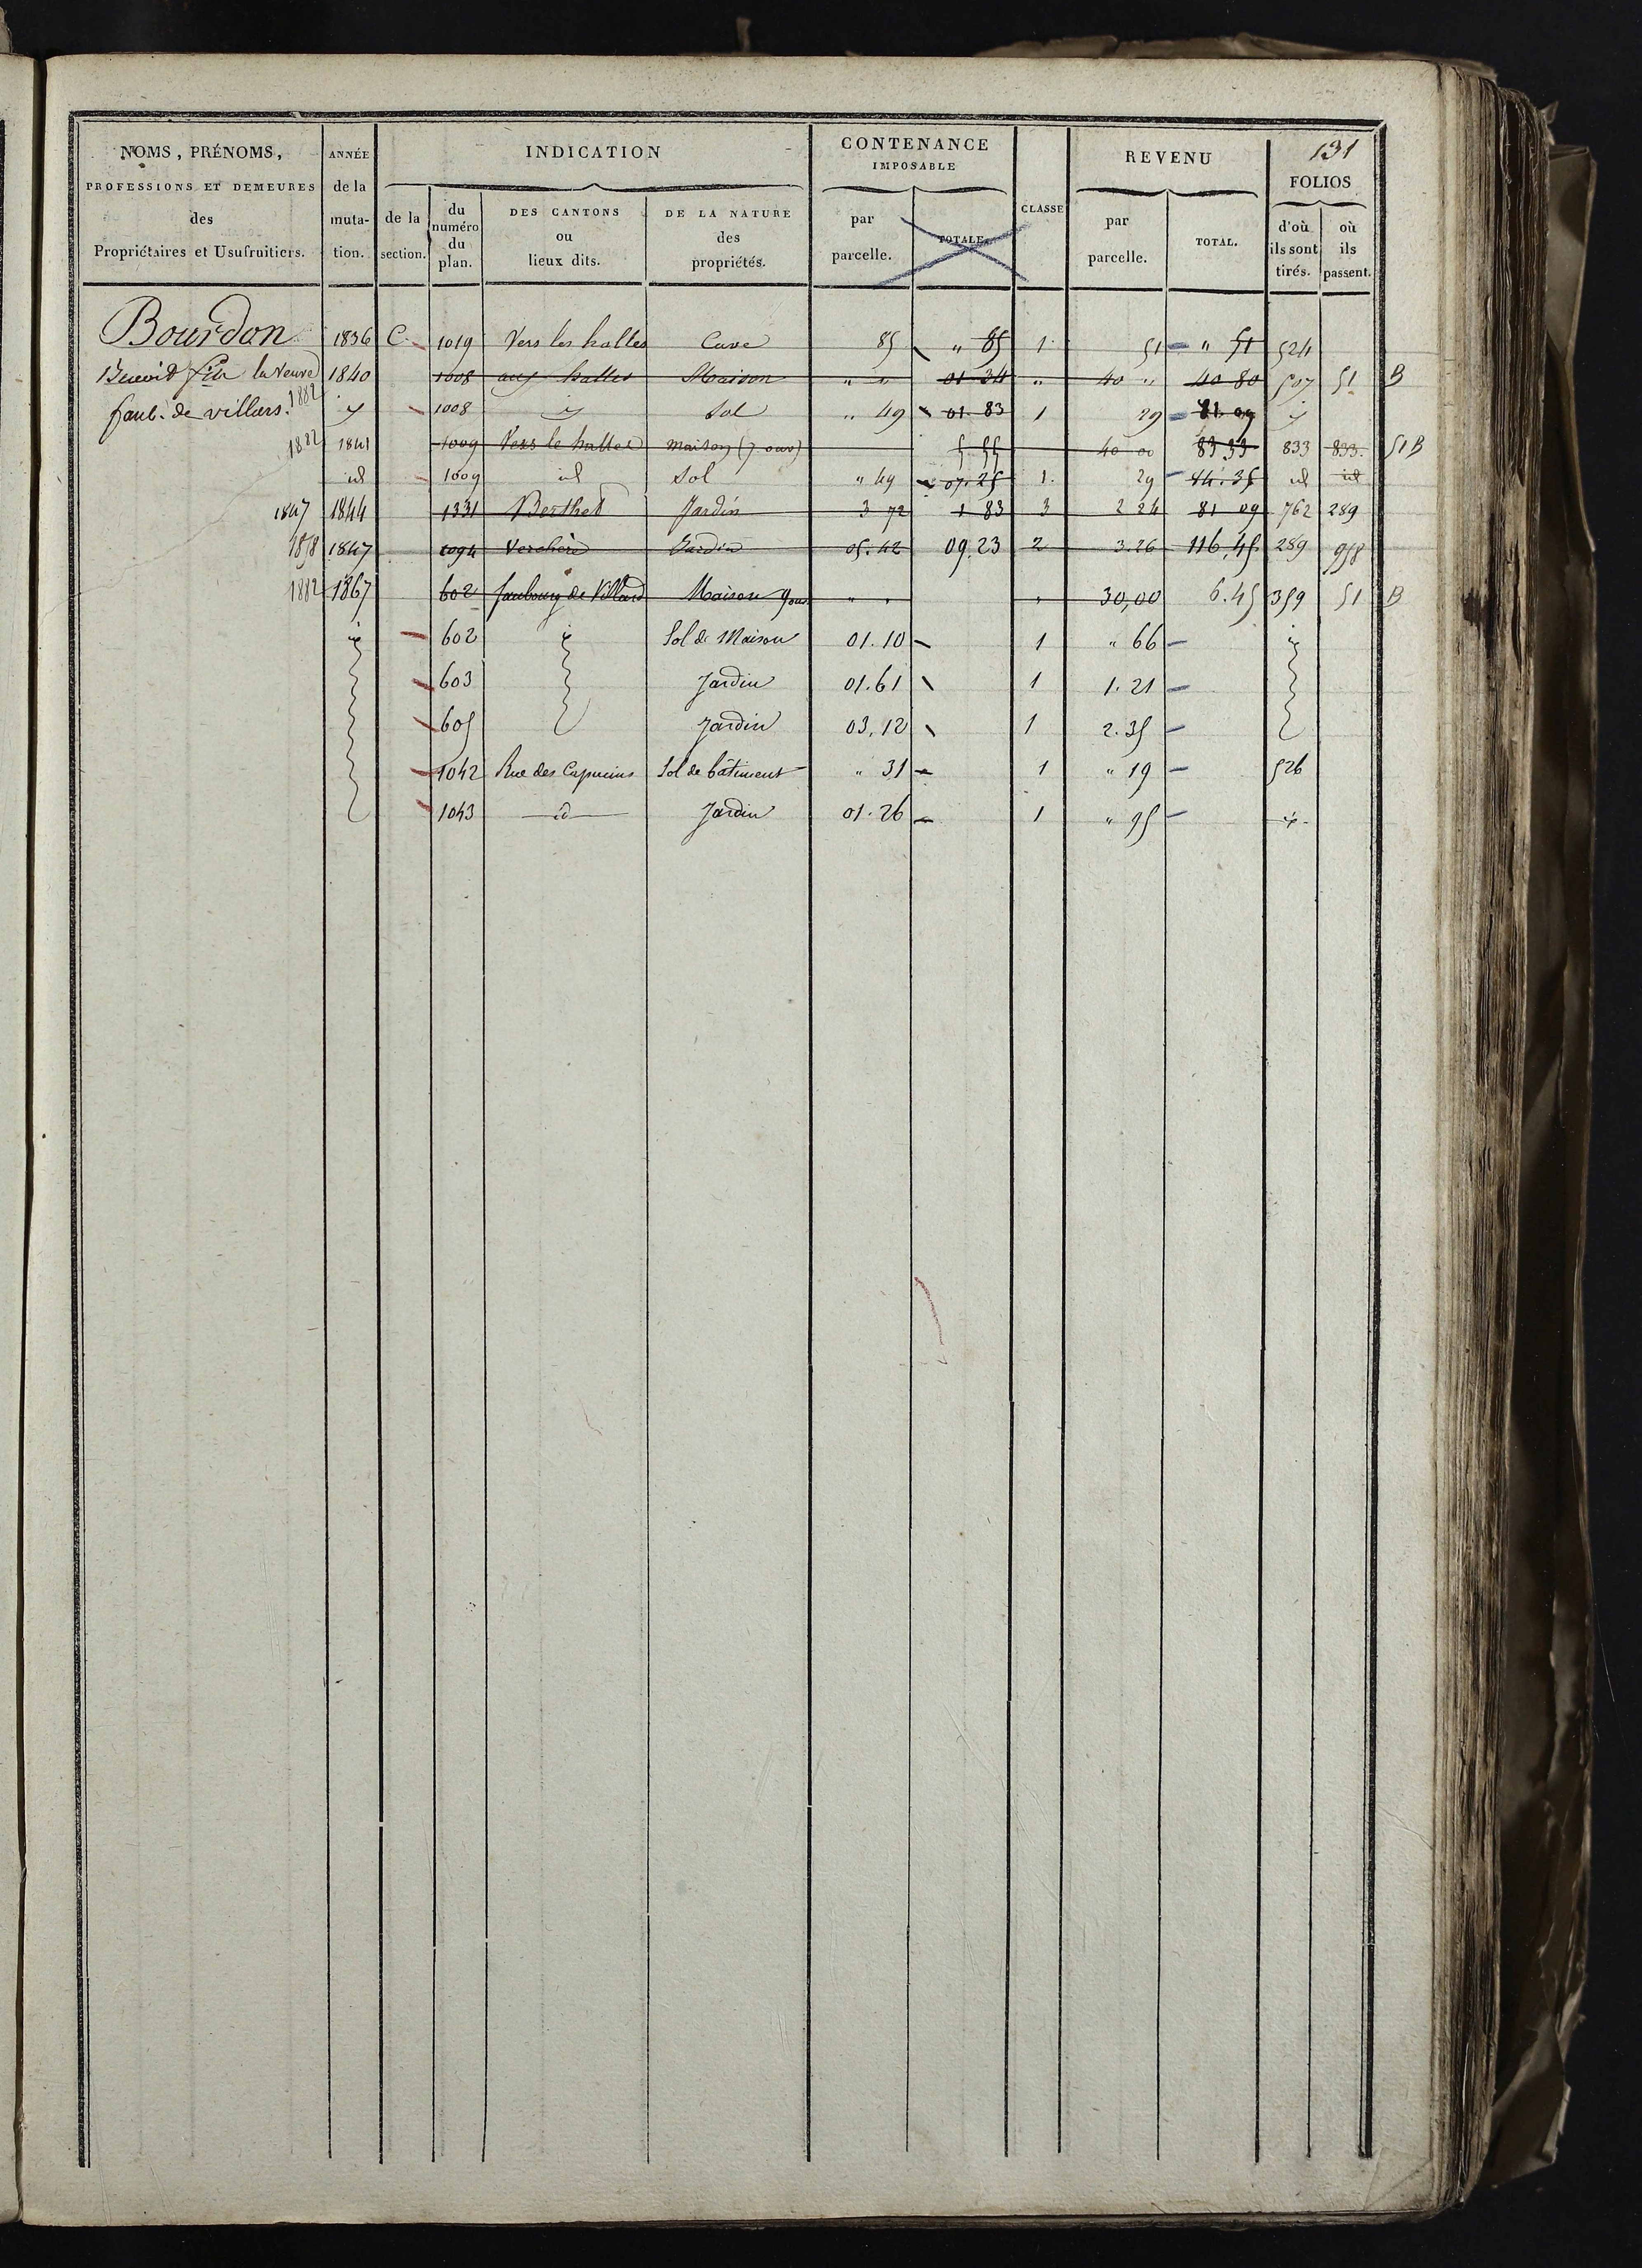 131
NOMS, PRÉNOMS, PROFESSIONS ET DEMEURES des Propriétaires et Usufruitiers.
ANNÉE de la mutation.
INDICATION
de la section.
du numéro du plan.
DES CANTONS ou lieux dits.
DE LA NATURE des propriétés.
CONTENANCE IMPOSABLE
par parcelle.
TOTALE.
CLASSE
REVENU
par parcelle.
TOTAL.
FOLIOS
d'où ils sont tirés.
où ils passent.
Bourdon 1836 C. 1019 Vers les halles Cave 85 " 85 1 51 " 51 524
Benoit fils la veuve 1840 1008 aux halles Maison " " 01 34 " 40 " 40 80 507 51 B
faub. de villars. 1882 id 1008 id Sol " 49 01.83 1 29 81.09 id
1882 1841 1009 Vers le halles maison (7 ouv) 5.55 40 00 83 33 833 833. 51 B
id 1009 id Sol " 49 07.25 1. 29 44.35 id id
1847 1844 1331 Berthet Jardin 3 72 1 83 3 2 24 81 09 762 289
1858 1847 1094 Verchère Jardin 05.42 09.23 2 3.26 116,45 289 958
1882 1867 602 faubourg de Villard Maison 9 ouv " " " 30,00 6.45 359 51 B
id 602 id Sol de Maison 01.10 1 " 66 id
603 Jardin 01.61 1 1.21
605 Jardin 03,12 1 2.35
1042 Rue des Capucins Sol de bâtiment " 31 1 " 19 526
1043 id Jardin 01.26 1 " 95 id